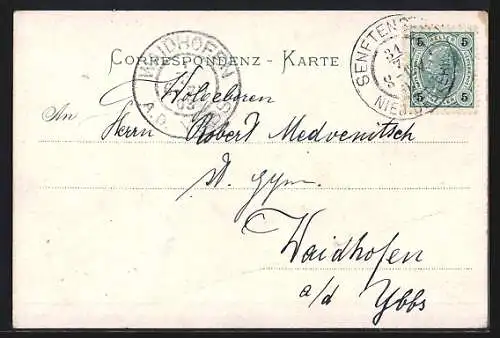 CORRESPONDENZ - KARTE
WAIDHOFEN
A.D.
SENFTEN
NIED.
5 5
5 5
Wolgeboren
An Herrn Robert Medvenitsch
st. gym.
Waidhofen
a/d Ybbs